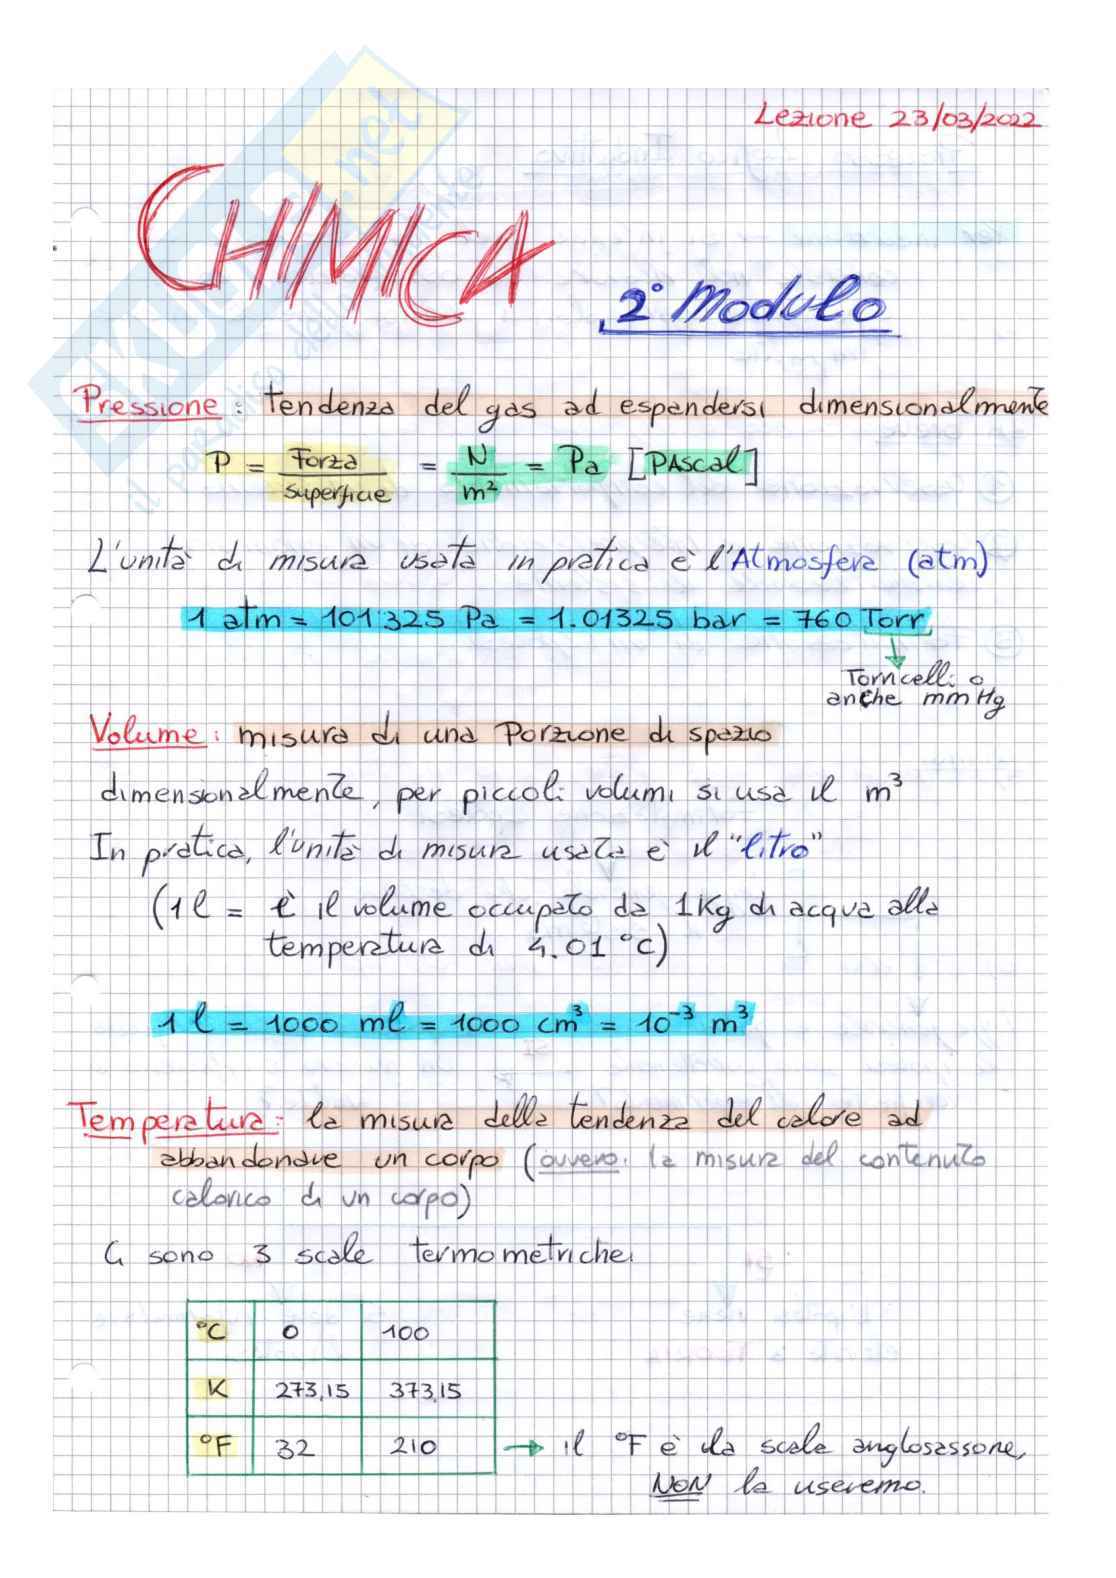 Lezione 23/03/2022
CHIMICA
2° Modulo
Pressione: tendenza del gas ad espandersi dimensionalmente
P = Forza / superficie = N / m² = Pa [PAscal]
L'unità di misura usata in pratica è l'Atmosfera (atm)
1 atm = 101'325 Pa = 1.01325 bar = 760 Torr
Torricelli o
anche mmHg
Volume: misura di una Porzione di spazio
dimensionalmente, per piccoli volumi si usa il m³
In pratica, l'unità di misura usata è il "litro"
(1 l = è il volume occupato da 1Kg di acqua alla
temperatura di 4.01 °C)
1 l = 1000 ml = 1000 cm³ = 10⁻³ m³
Temperatura: la misura della tendenza del calore ad
abbandonare un corpo (ovvero: la misura del contenuto
calorico di un corpo)
Ci sono 3 scale termometriche:
°C 0 100
K 273,15 373,15
°F 32 210 → il °F è la scala anglosassone,
NON la useremo.
SKUOLA.net
il paradiso dello studente